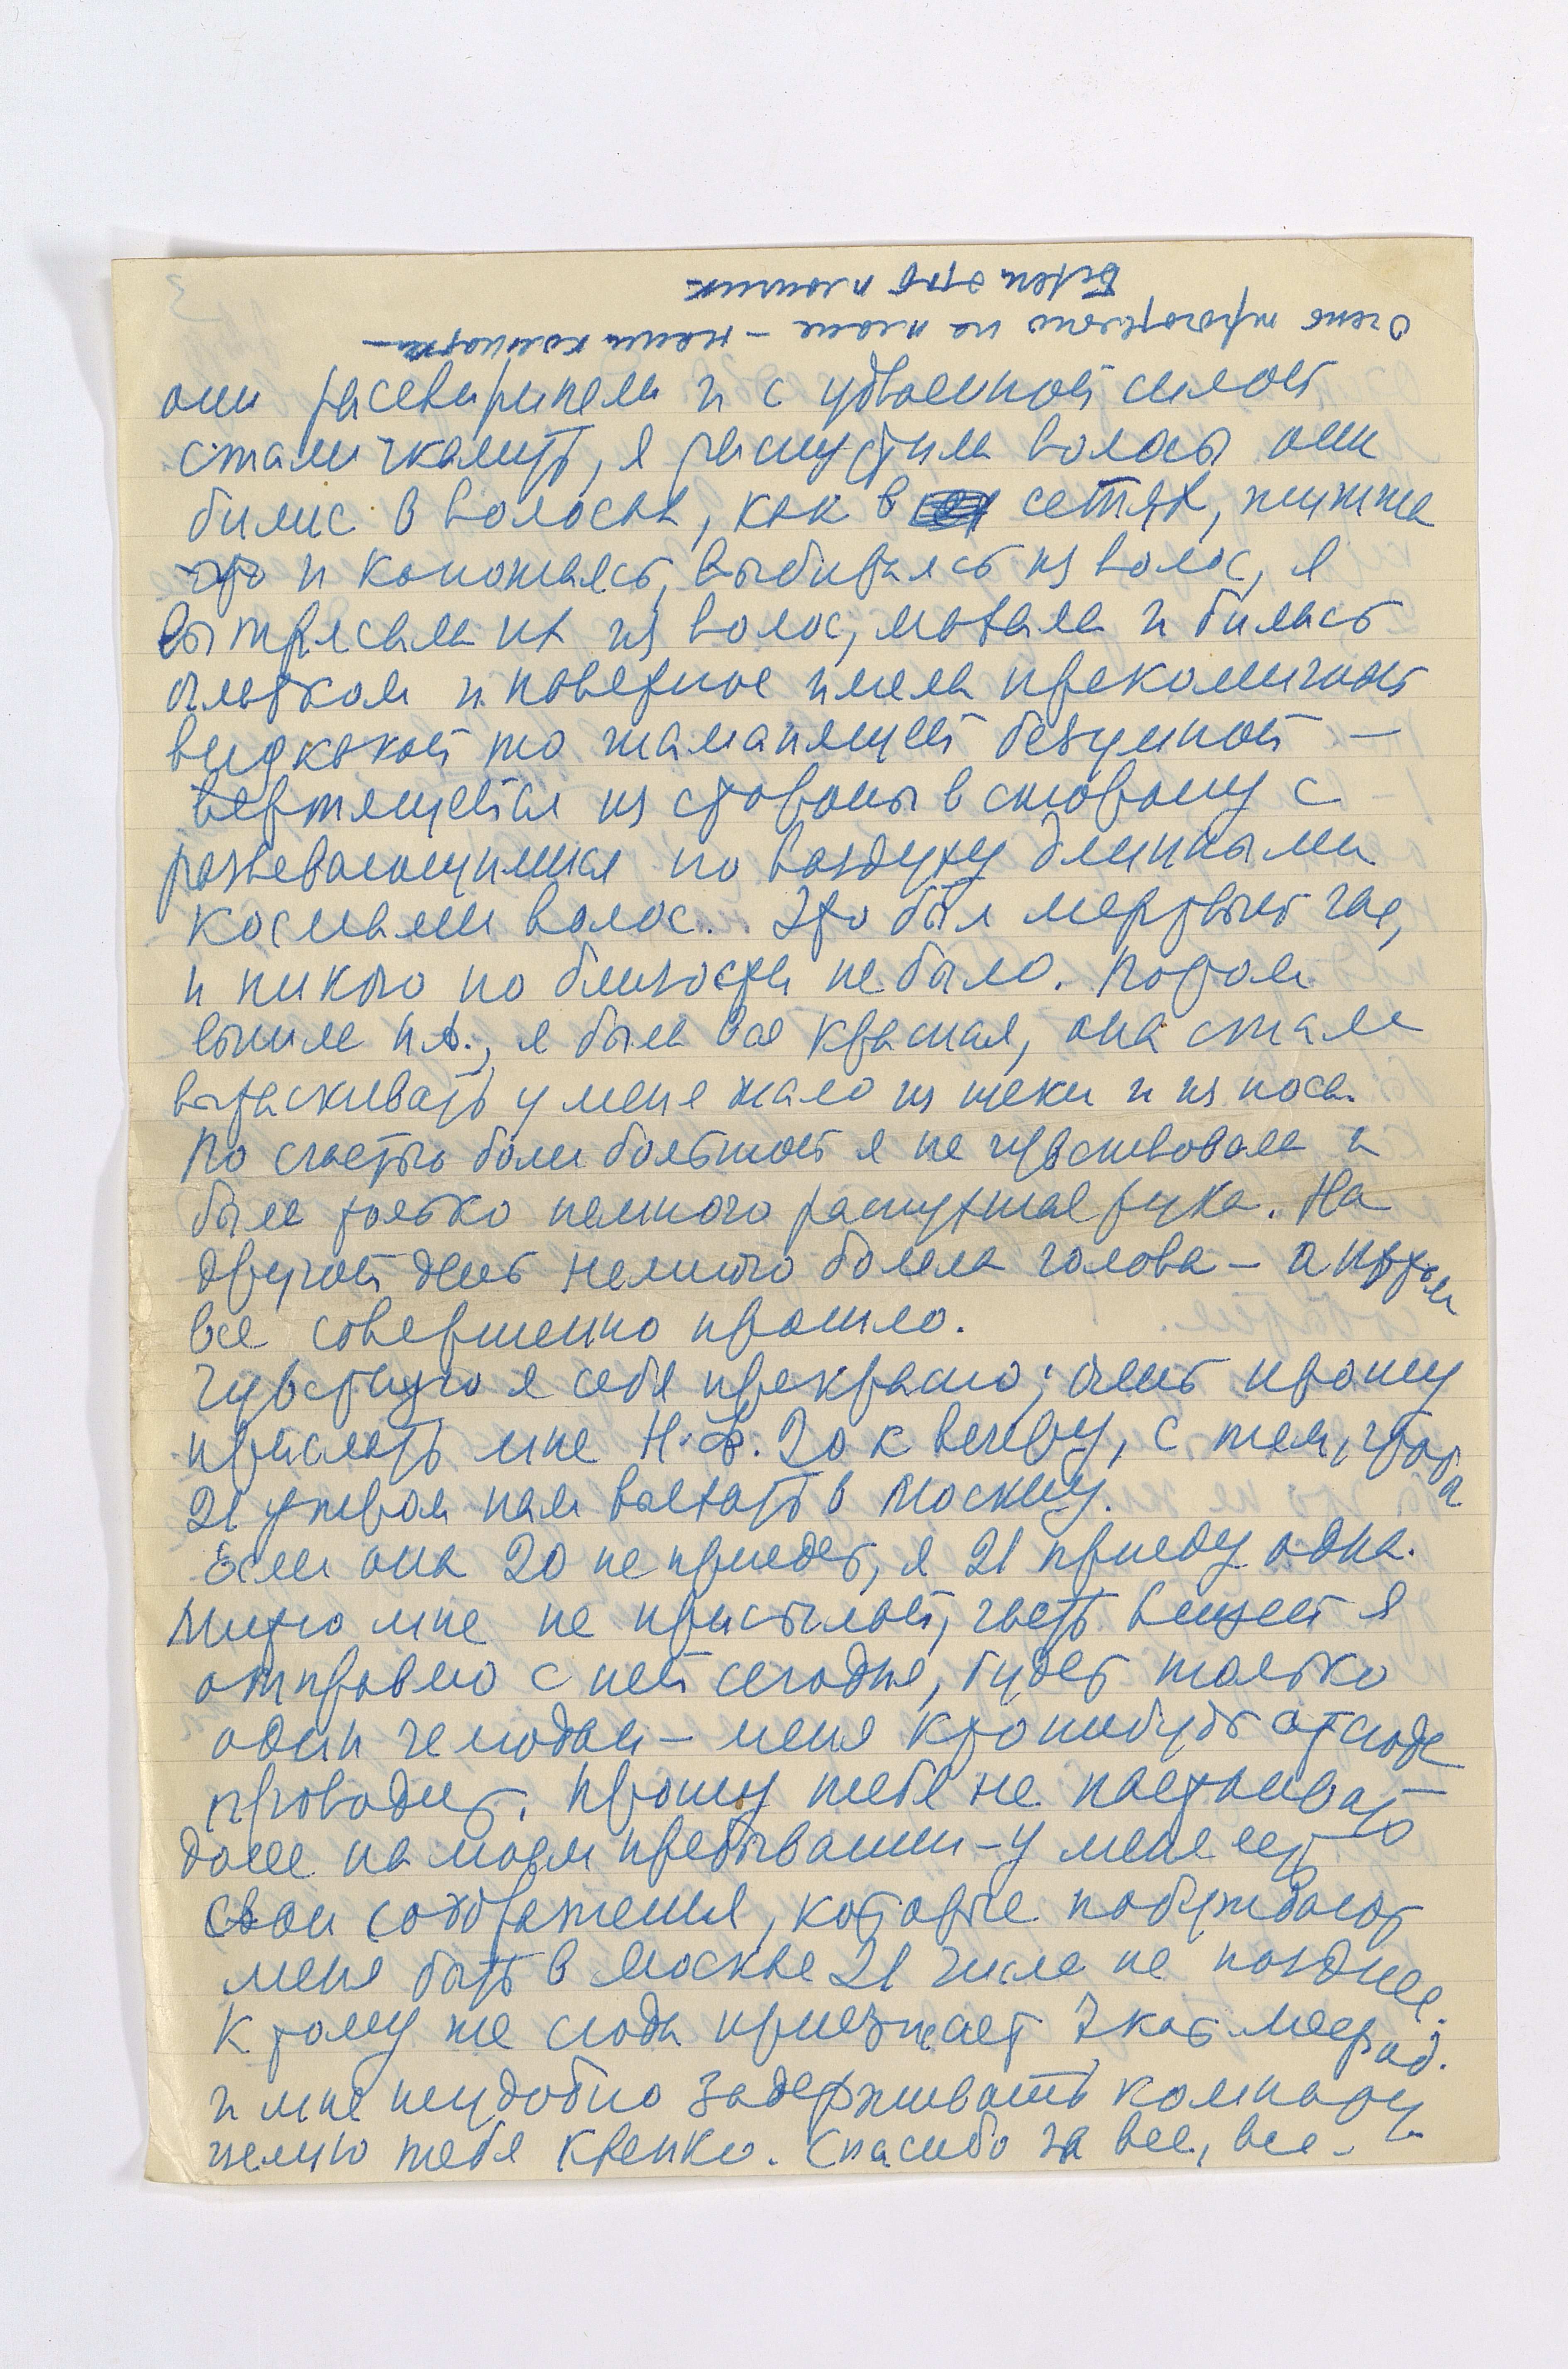 Очень трогательно на плане – наши комнаты –
Берегу этот планчик
они рассвирепели и с удвоенной силой
стали жалить, я распустила волосы они
бились в волосах, как в сетях, жужжа
и копошась, выбираясь из волос, я
вытрясала их из волос, мотала и билась
платком и наверное имела прекомичный
вид какой то шаманящей безумной –
вертящейся из стороны в сторону с
развевающимися по воздуху длинными
космами волос. Это был мертвый час,
и никого по близости не было. Потом
вышла Н.А., я была вся красная, она стала
вытаскивать у меня жало из щеки и из носа.
По счастью боли большой я не чувствовала и
была только немного распухшая рука. На
другой день немного болела голова – а потом
все совершенно прошло.
Чувствую я себя прекрасно; очень прошу
прислать мне Н.Ф. 20 к вечеру, с тем, чтобы
21 утром нам выехать в Москву.
Если она 20 не приедет, я 21 приеду одна.
Митю мне не присылай, часть вещей я
отправлю с ней сегодня, будет только
один чемодан – меня кто нибудь отсюда
проводит. Прошу тебя не настаивать
далее на моем пребывании – у меня есть
свои соображения, которые побуждают
меня быть в Москве 21 числа не позднее.
К тому же сюда приезжает Экат.
и мне неудобно задерживать комнату
целую тебя крепко. Спасибо за все, все –